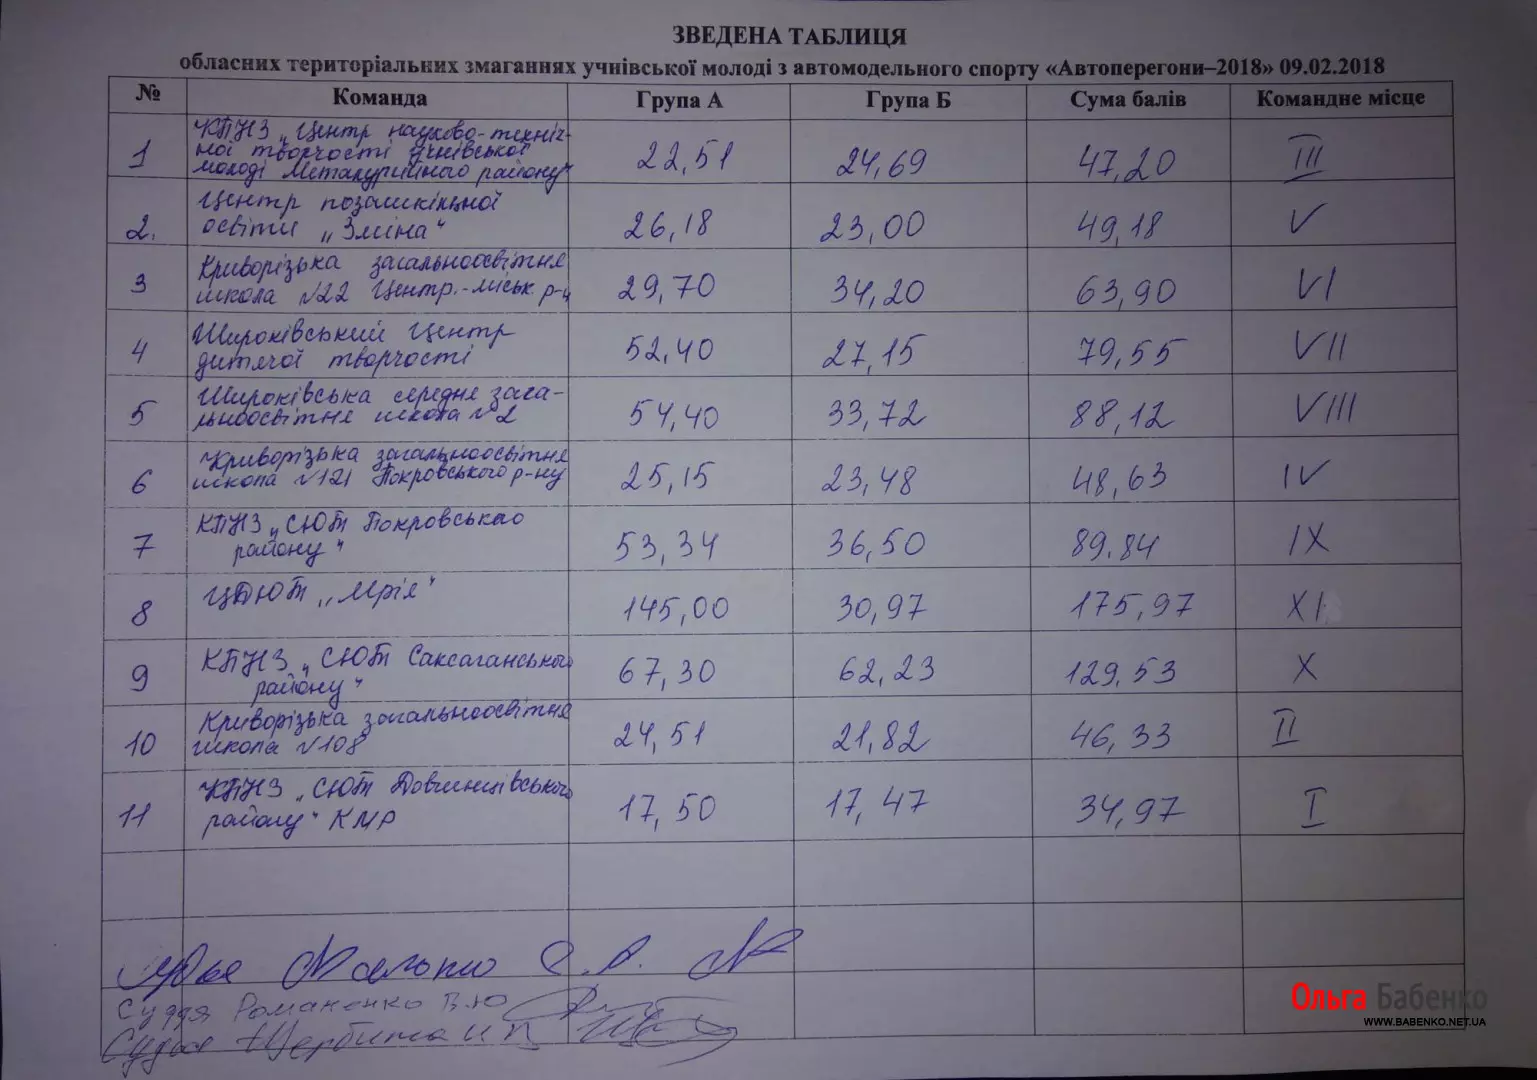 ЗВЕДЕНА ТАБЛИЦЯ
обласних територіальних змаганнях учнівської молоді з автомодельного спорту «Автоперегони–2018» 09.02.2018
№ Команда Група А Група Б Сума балів Командне місце
КПНЗ „Центр науково-техніч-
ної творчості учнівської
молоді Металургійного району"
1 22,51 24,69 47,20 III
Центр позашкільної
освіти „Зміна"
2. 26,18 23,00 49,18 V
Криворізька загальноосвітня
школа №22 Центр.-міськ. р-н
3 29,70 34,20 63,90 VI
Широківський Центр
дитячої творчості
4 52,40 27,15 79,55 VII
Широківська середня зага-
льноосвітня школа №2
5 54,40 33,72 88,12 VIII
Криворізька загальноосвітня
школа №121 Покровського р-ну
6 25,15 23,48 48,63 IV
КПНЗ „СЮТ Покровського
району"
7 53,34 36,50 89.84 IX
ЦДЮТ „Мрія"
8 145,00 30,97 175,97 XI
КПНЗ „СЮТ Саксаганського
району"
9 67,30 62,23 129,53 X
Криворізька загальноосвітня
школа №108
10 24,51 21,82 46,33 II
КПНЗ „СЮТ Довгинцівського
району" КМР
11 17,50 17,47 34,97 I
Суддя Романенко В.Ю
Суддя Щербина
Ольга Бабенко
WWW.BABENKO.NET.UA